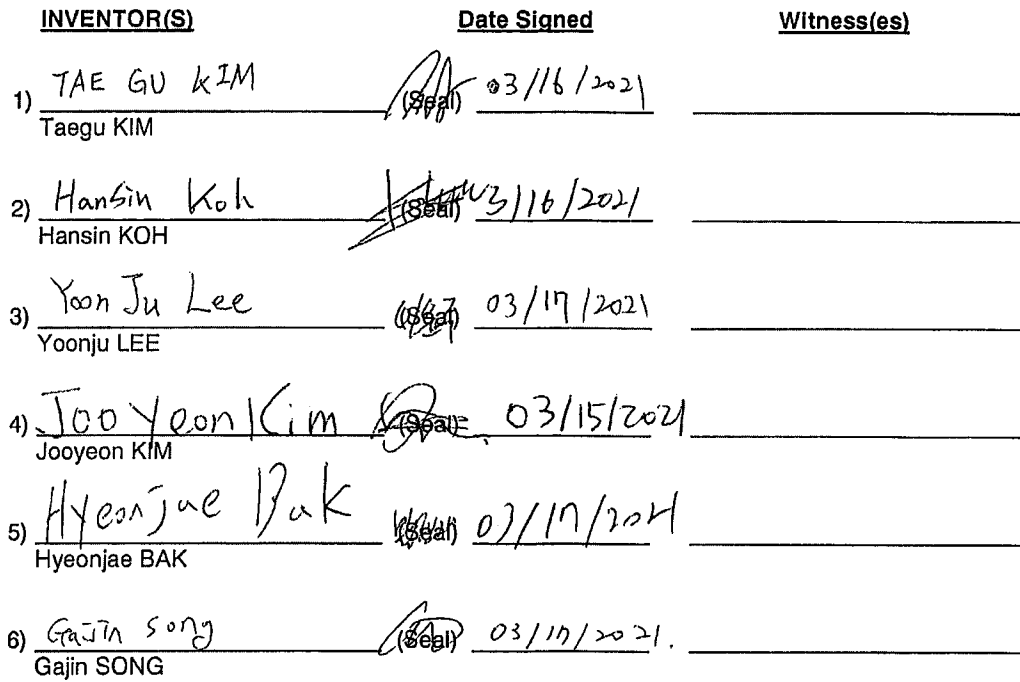 INVENTOR(S) Date Signed Witness(es)
1) TAE GU KIM (Seal) 03/16/2021
Taegu KIM
2) Hansin Koh (Seal) 3/16/2021
Hansin KOH
3) Yoon Ju Lee (Seal) 03/17/2021
Yoonju LEE
4) Joo Yeon Kim (Seal) 03/15/2021
Jooyeon KIM
5) Hyeonjae Bak (Seal) 03/17/2021
Hyeonjae BAK
6) GaJin Song (Seal) 03/17/2021.
Gajin SONG